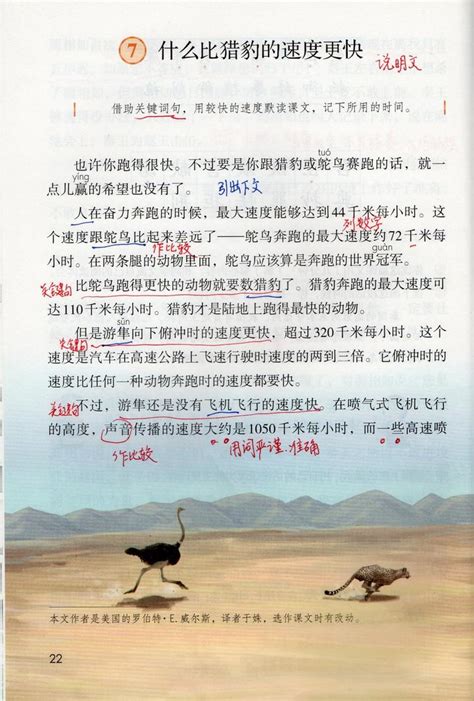 7 什么比猎豹的速度更快
说明文
借助关键词句，用较快的速度默读课文，记下所用的时间。
tuó
也许你跑得很快。不过要是你跟猎豹或鸵鸟赛跑的话，就一
yíng
点儿赢的希望也没有了。 引出下文
人在奋力奔跑的时候，最大速度能够达到44千米每小时。这
列数字
个速度跟鸵鸟比起来差远了——鸵鸟奔跑的最大速度约72千米每
作比较
guàn
小时。在两条腿的动物里面，鸵鸟应该算是奔跑的世界冠军。
关键句
比鸵鸟跑得更快的动物就要数猎豹了。猎豹奔跑的最大速度可
达110千米每小时。猎豹才是陆地上跑得最快的动物。
sǔn
但是游隼向下俯冲时的速度更快，超过320千米每小时。这个
关键句
速度是汽车在高速公路上飞速行驶时速度的两到三倍。它俯冲时的
速度比任何一种动物奔跑时的速度都要快。
关键句
不过，游隼还是没有飞机飞行的速度快。在喷气式飞机飞行
的高度，声音传播的速度大约是1050千米每小时，而一些高速喷
作比较
用词严谨、准确
本文作者是美国的罗伯特·E.威尔斯，译者于姝，选作课文时有改动。
22